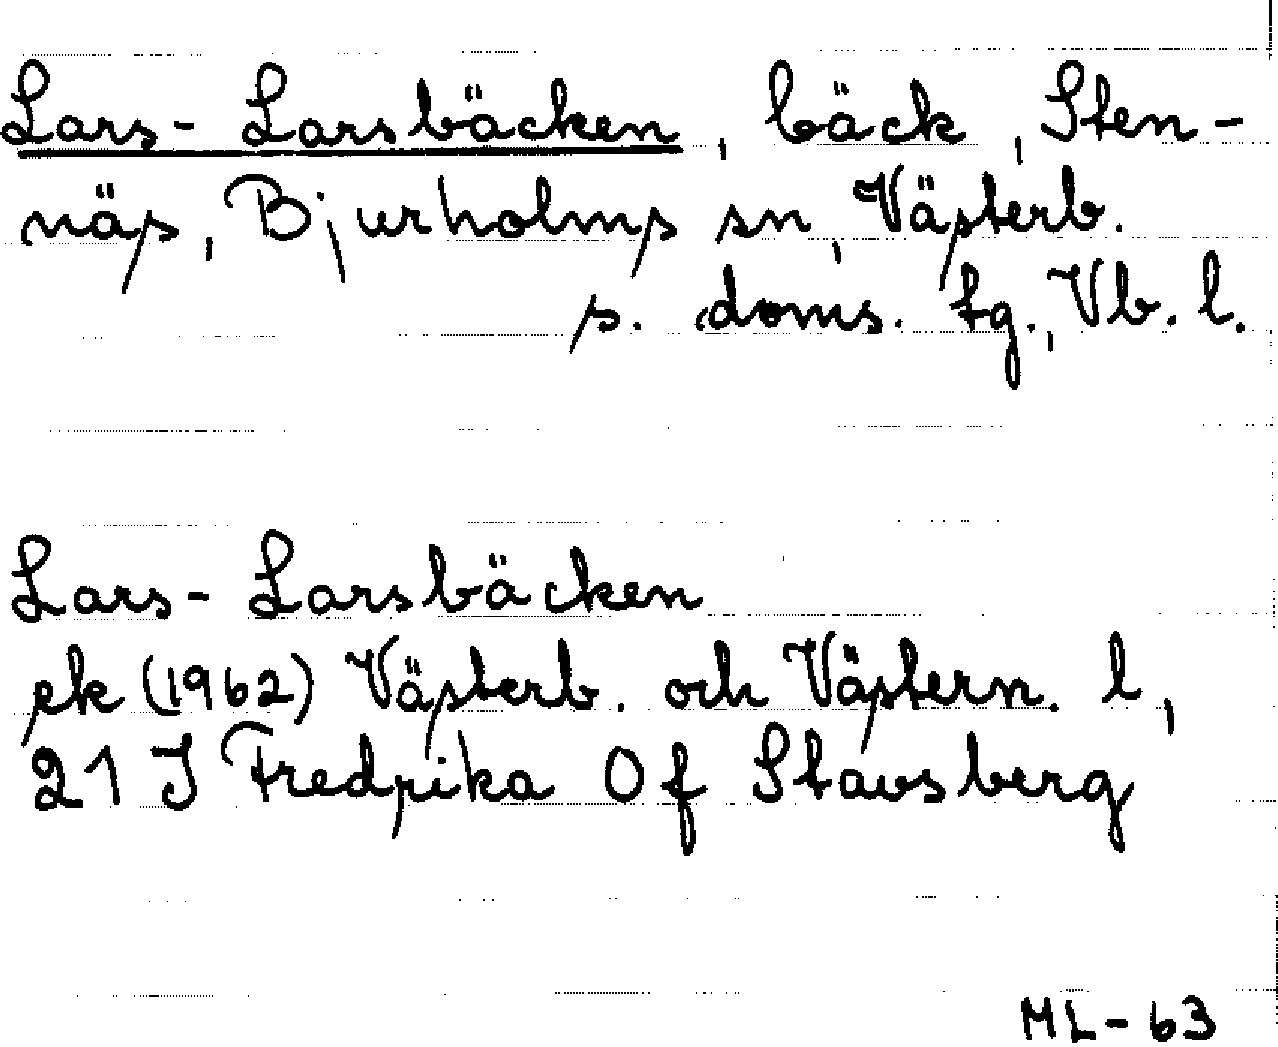 Lars-Larsbäcken, bäck, Sten-
näs, Bjurholms sn, Västerb.
s. doms. tg., Vb. l.
Lars-Larsbäcken
ek (1962) Västerb. och Västern. l,
21 J Fredrika 0 f Stavsberg
ML-63